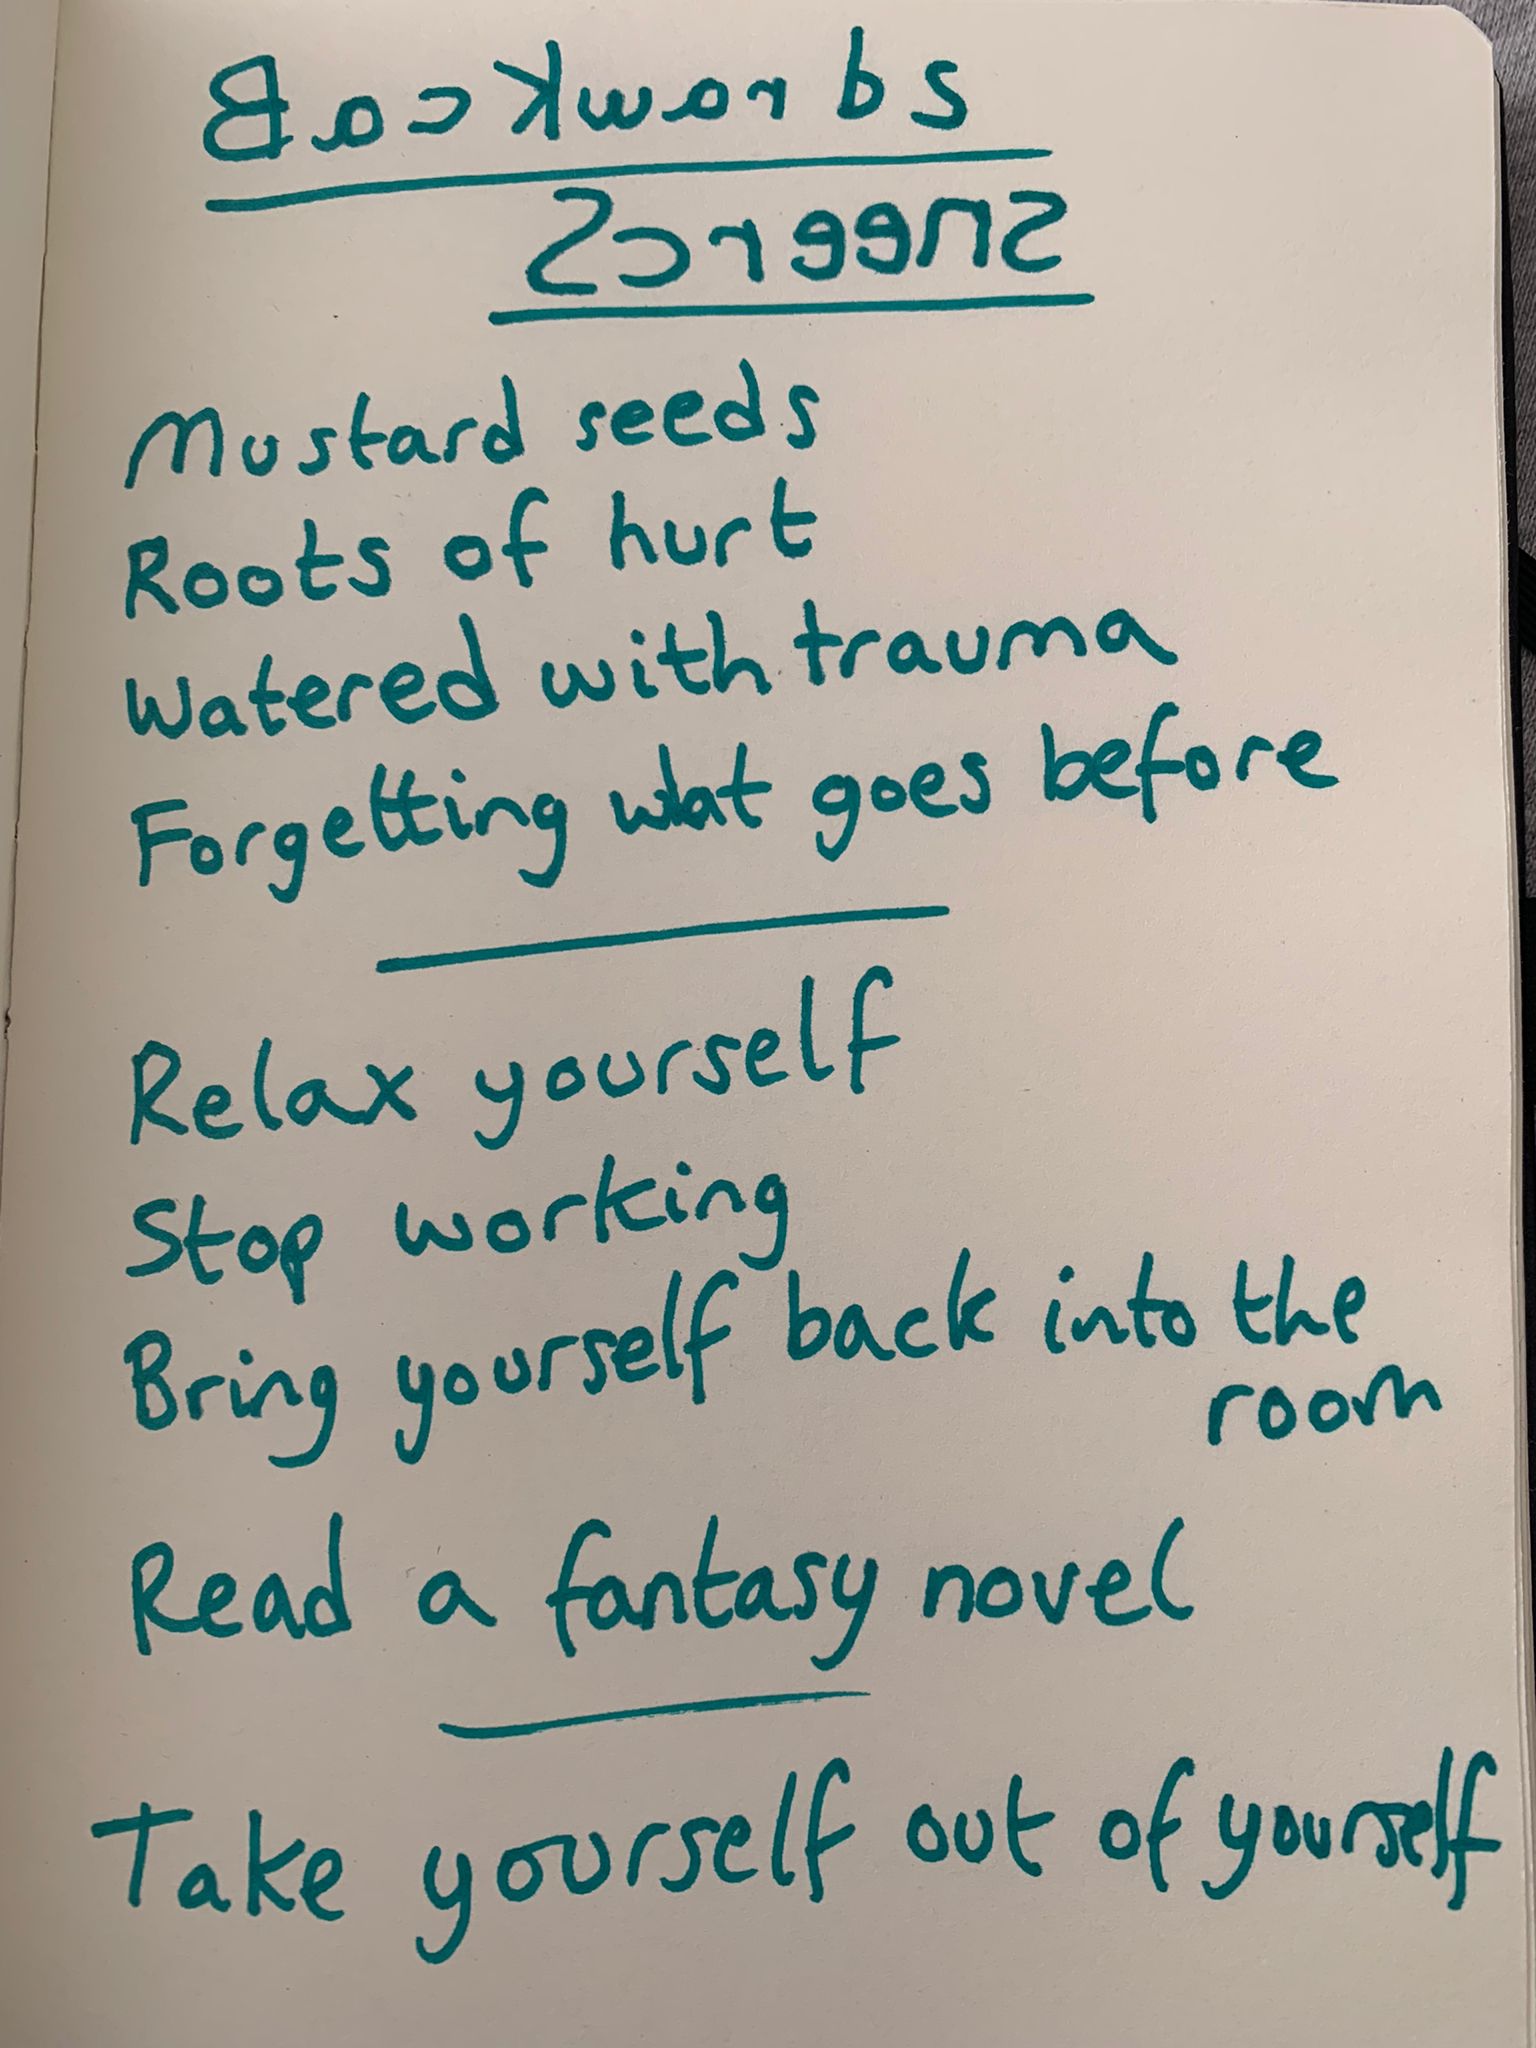 Backwards
Screens
Mustard seeds
Roots of hurt
Watered with trauma
Forgetting what goes before
Relax yourself
Stop working
Bring yourself back into the
room
Read a fantasy novel
Take yourself out of yourself